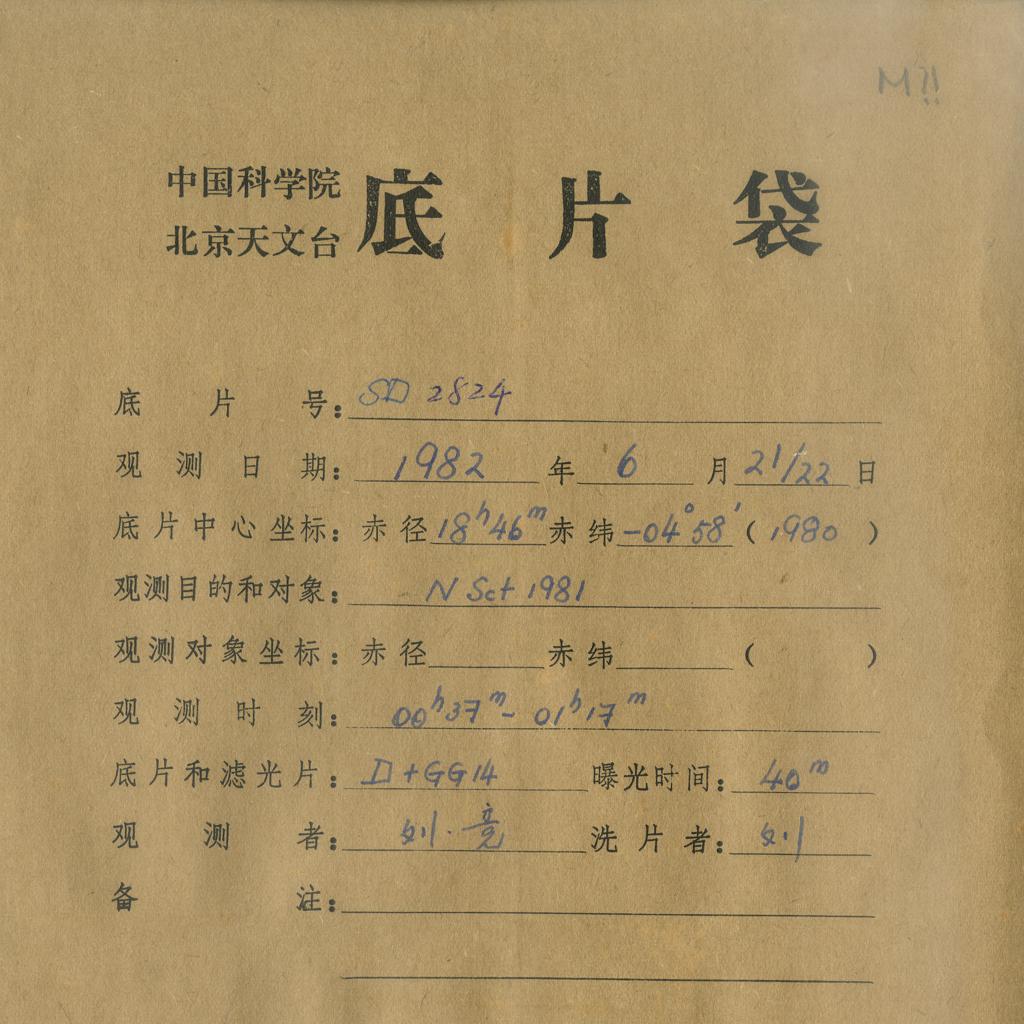 M11
中国科学院
北京天文台
底片袋
底片号: SD 2824
观测日期: 1982 年 6 月 21/22 日
底片中心坐标: 赤径 18ʰ46ᵐ 赤纬 -04°58′ ( 1980 )
观测目的和对象: N Sct 1981
观测对象坐标: 赤径 赤纬 ( )
观测时刻: 00ʰ37ᵐ - 01ʰ17ᵐ
底片和滤光片: D+GG14 曝光时间: 40ᵐ
观测者: 刘·竞 洗片者: 刘
备注: